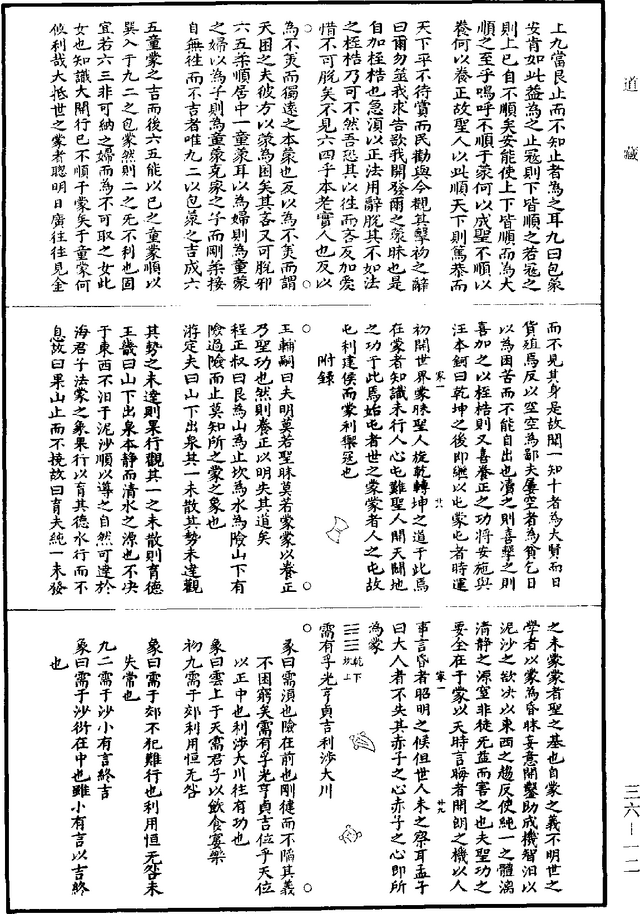 道藏
上九當艮止而不知止者為之耳九曰包蒙
安肯如此益為之止寇則下皆順之若寇之
則上已自不順矣安能使上下皆順而為大
順之至乎嗚呼不順于蒙何以成聖不順以
養何以養正故聖人以此順天下則篤恭而
天下平不待賞而民勸與今觀其擊初之辭
曰爾勿筮我求告欲我開發爾之蒙昧也是
自加桎梏也急湏以正法用辭脫其不如法
之桎梏乃可不然吾恐其以往而吝反加愛
惜不可脫矣不見六四乎本老實人也反以
為不美而獨遠之本蒙也反以為不美而謂
天困之夫彼方以蒙為困矣其吝又可脫邪
六五柔順居中一童蒙耳以為婦則為童蒙
之婦以為子則為童蒙克家之子而剛柔接
自無往而不吉者唯九二以包蒙之吉成六
五童蒙之吉而後六五能以已之童蒙順以
巽入于九二之包蒙然則二之无不利也固
宜若六三非可納之婦而為不可取之女此
女也知識大開行已不順于蒙矣于童蒙何
攸利哉大抵世之蒙者聰明日廣往往見金
而不見其身是故聞一知十者為大賢而日
貨殖焉反以空空為鄙夫屢空者為貧乞日
以為困苦而不能自出也瀆之則喜擊之則
喜加之以桎梏則又喜養正之功將安施與
汪本鈳曰乾坤之後即繼以屯蒙屯者時運
初開世界蒙昧聖人旋乾轉坤之道于此焉
在蒙者知識未行人心屯難聖人開天闢地
之功于此焉始屯者世之蒙蒙者人之屯故
屯利建侯而蒙利禦寇也
附錄
王輔嗣曰夫明莫若聖昧莫若蒙蒙以養正
乃聖功也然則養正以明失其道矣
程正叔曰艮為山為止坎為水為險山下有
險遇險而止莫知所之蒙之象也
游定夫曰山下出泉其一未散其勢未達觀
其勢之未達則果行觀其一之未散則育德
王畿曰山下出泉本静而清水之源也不决
于東西不汨于泥沙順以導之自然可達於
海君子法蒙之象果行以育其德水行而不
息故曰果山止而不撓故曰育夫純一未發
之未蒙蒙者聖之基也自蒙之義不明世之
學者以蒙為昏昧妄意開鑿助成機智汨以
泥沙之欲决以東西之趨反使純一之體漓
清静之源窒非徒无益而害之也夫聖功之
要全在于蒙以天時言晦者開朗之機以人
事言昏者昭明之候但世人未之察耳孟子
曰大人者不失其赤子之心赤子之心即所
為蒙
乾下
坎上
需有孚光亨貞吉利涉大川
彖曰需湏也險在前也剛健而不陷其義
不困窮矣需有孚光亨貞吉位乎天位
以正中也利涉大川往有功也
象曰雲上于天需君子以飲食宴樂
初九需于郊利用恒无咎
象曰需于郊不犯難行也利用恒无咎未
失常也
九二需于沙小有言終吉
象曰需于沙衍在中也雖小有言以吉終
也
蒙一
廿八
蒙一
廿九
三六－一二